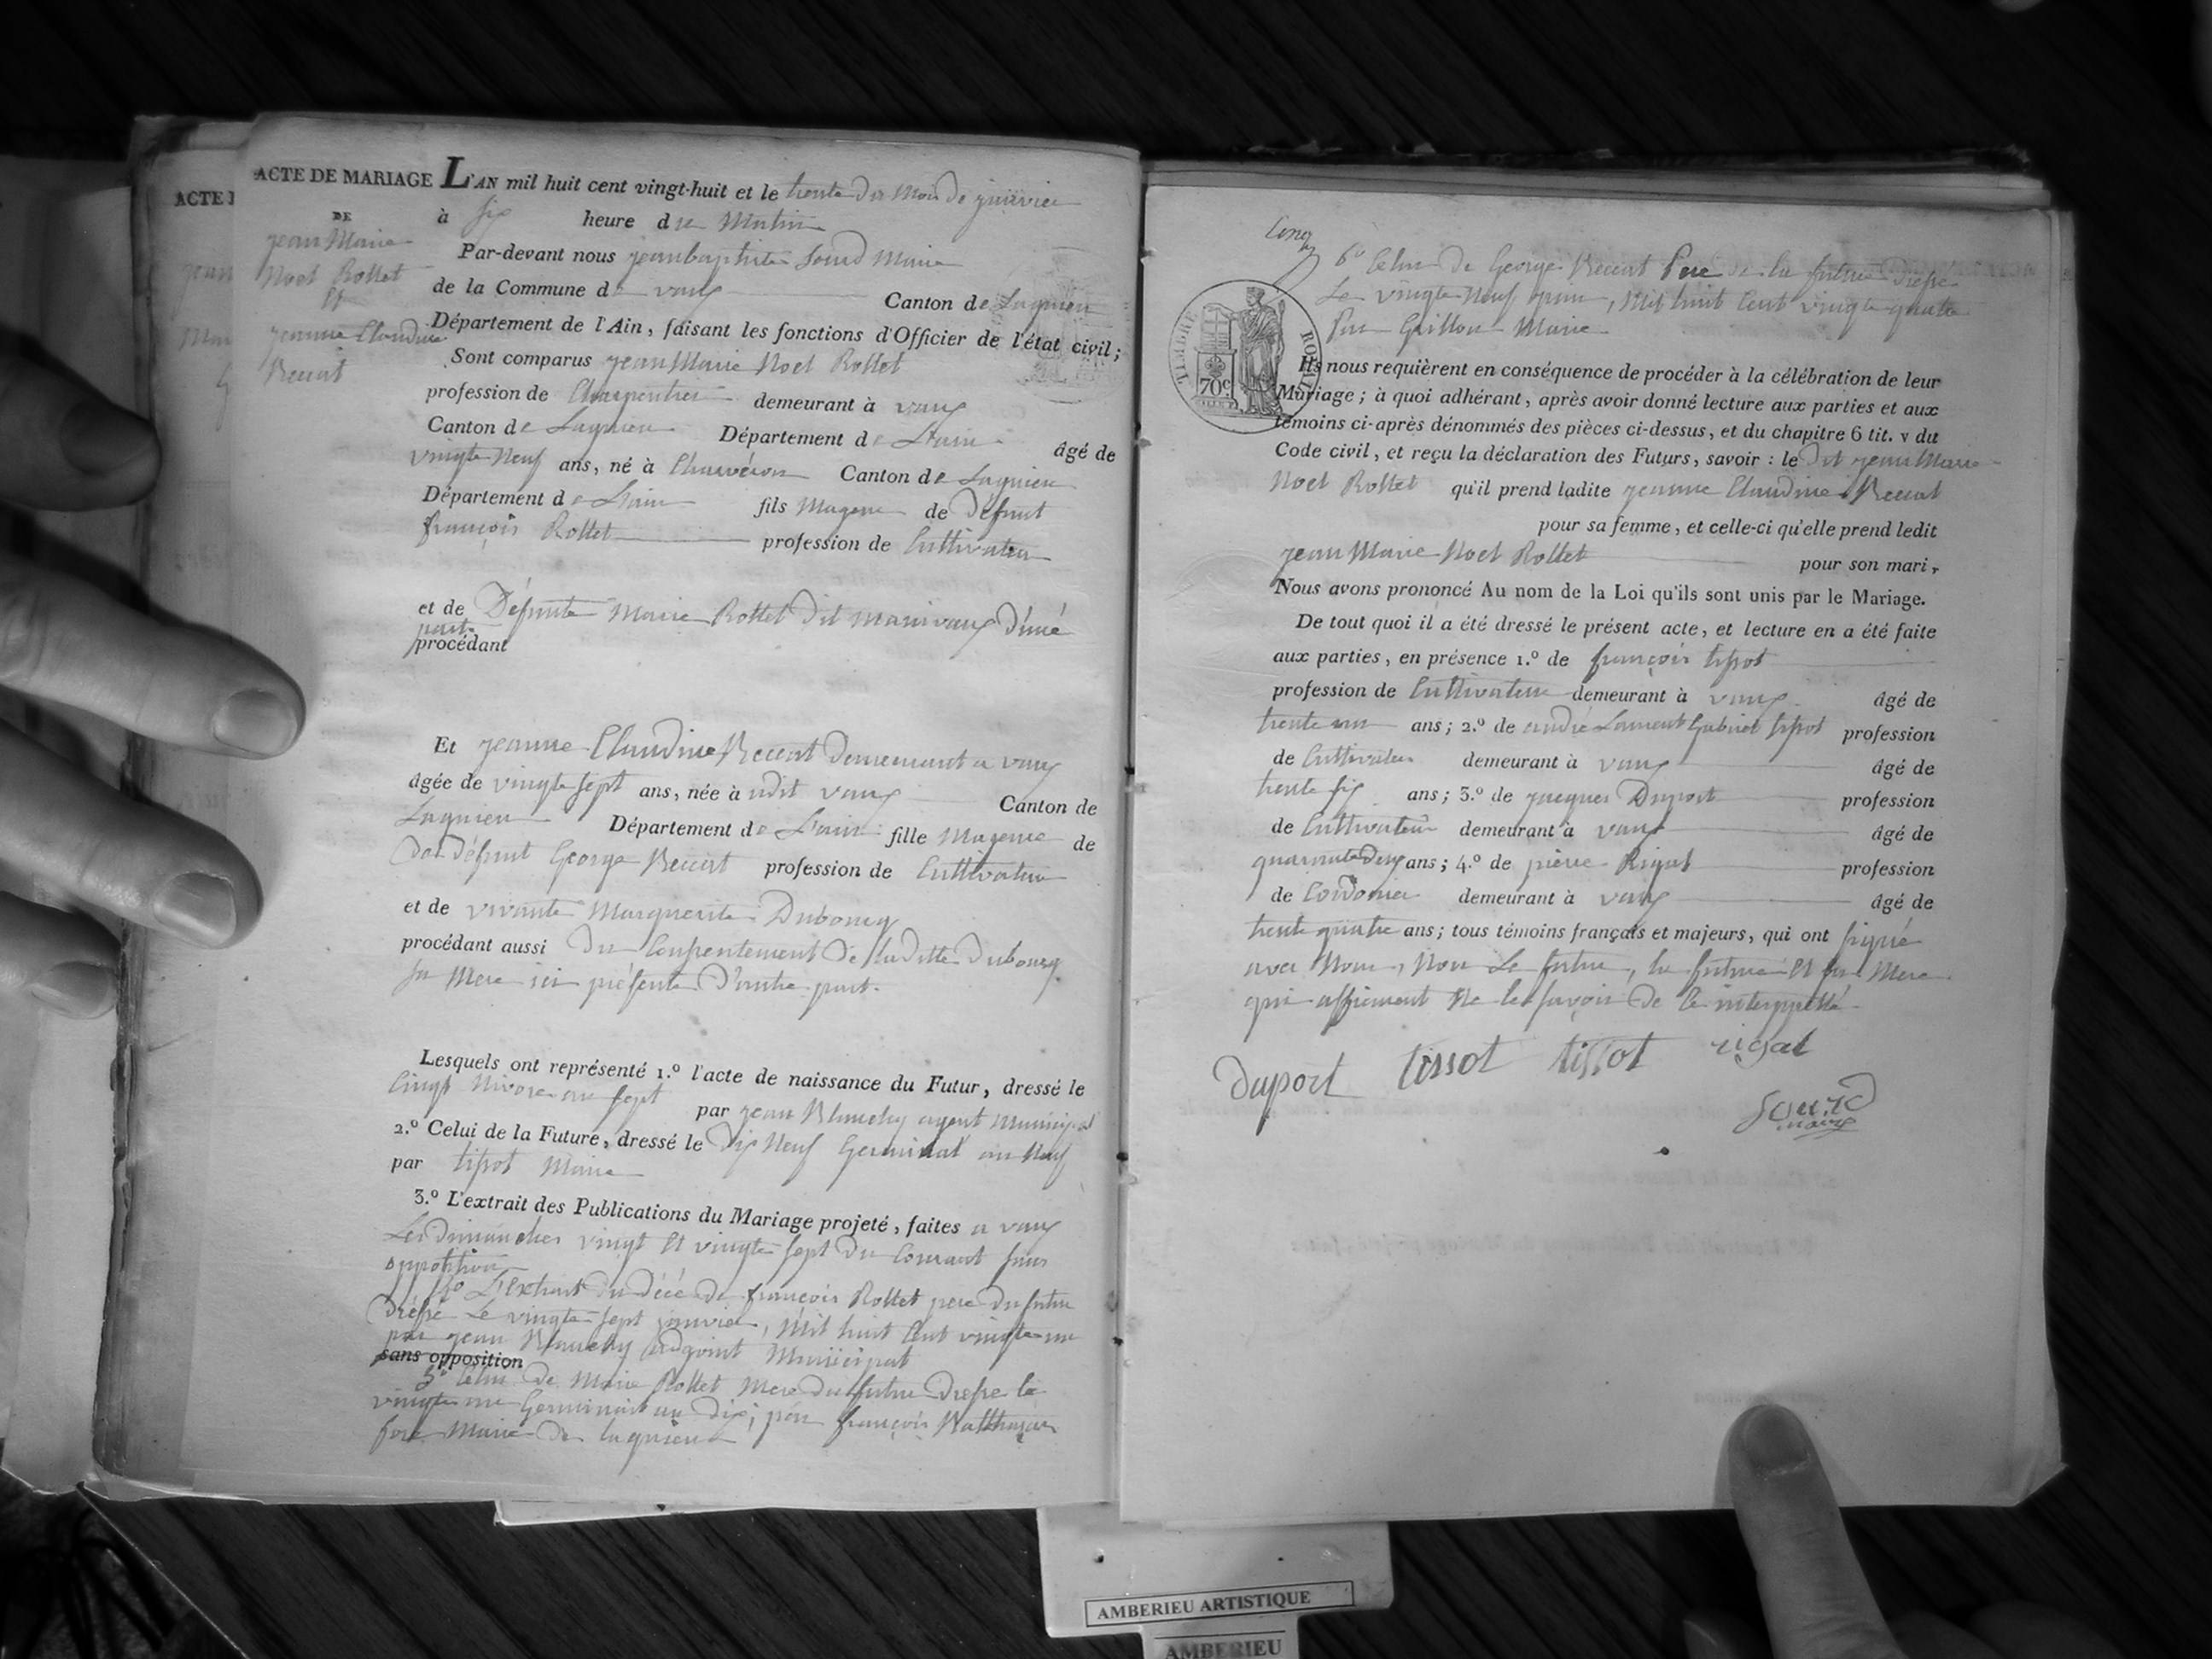 ACTE DE MARIAGE L'AN mil huit cent vingt-huit et le trente du Mois de janvier
ACTE
DE
à six heure du Matin
jean Marie
Noel Rollet
Et
jeanne Claudine
Par-devant nous jean baptiste Sourd Maire
de la Commune de vaux Canton de Lagnieu
Département de l'Ain, faisant les fonctions d'Officier de l'état civil;
Sont comparus jean Marie Noel Rollet
profession de Charpentier demeurant à vaux
Canton de Lagnieu Département de L'ain âgé de
vingt Neuf ans, né à Canton de Lagnieu
Département de L'ain fils Mageur de défunt
françois Rollet profession de Cultivateur
et de Défunte Marie Rollet dit d'une
part
procédant
Et jeanne Claudine demeurant a vaux
âgée de vingt sept ans, née à udit vaux Canton de
Lagnieu Département de L'ain fille Mageure de
de défunt George profession de Cultivateur
et de vivante Marguerite Dubourg
procédant aussi du Consentement de laditte Dubourg
sa Mere ici présente D'autre part.
Lesquels ont représenté 1.º l'acte de naissance du Futur, dressé le
Cinq Nivose an sept par jean agent Municipal
2.º Celui de la Future, dressé le dix Neuf Germinal an Neuf
par tissot Maire
3.º L'extrait des Publications du Mariage projeté, faites a vaux
Les dimanches vingt Et vingt sept du Courant sans
opposition
4º L'Extrait du décé de françois Rollet pere du futur
dressé Le vingt sept janvier, Mil huit Cent vingt un
par jean adjoint Municipal
sans opposition
5º Celui de Marie Rollet Mere du futur dressé le
vingt un Germinal an dix, par françois Balthazar
Maire de lagnieu
Cinq
6º Celui de George Pere de la future dressé
Le vingt Neuf juin, Mil huit Cent vingt quatre
Par Grillon Maire
TIMBRE ROYAL
70c
Ils nous requièrent en conséquence de procéder à la célébration de leur
Mariage; à quoi adhérant, après avoir donné lecture aux parties et aux
témoins ci-après dénommés des pièces ci-dessus, et du chapitre 6 tit. v du
Code civil, et reçu la déclaration des Futurs, savoir : le dit jean Marie
Noel Rollet qu'il prend ladite jeanne Claudine
pour sa femme, et celle-ci qu'elle prend ledit
jean Marie Noel Rollet pour son mari,
Nous avons prononcé Au nom de la Loi qu'ils sont unis par le Mariage.
De tout quoi il a été dressé le présent acte, et lecture en a été faite
aux parties, en présence 1.º de françois tissot
profession de Cultivateur demeurant à vaux âgé de
trente un ans; 2.º de andré Laurent Gabriel tissot profession
de Cultivateur demeurant à vaux âgé de
trente six ans; 3.º de jacques Duport profession
de Cultivateur demeurant à vaux âgé de
quarante Deux ans; 4.º de pierre Rigat profession
de Cordonier demeurant à vaux âgé de
trente quatre ans; tous témoins français et majeurs, qui ont signé
avec Nous, Non Le futur, la future Et sa Mere
qui affirment Ne le savoir de Ce interpellé
duport tissot tissot rigat
Sourd
maire
AMBERIEU ARTISTIQUE
AMBERIEU